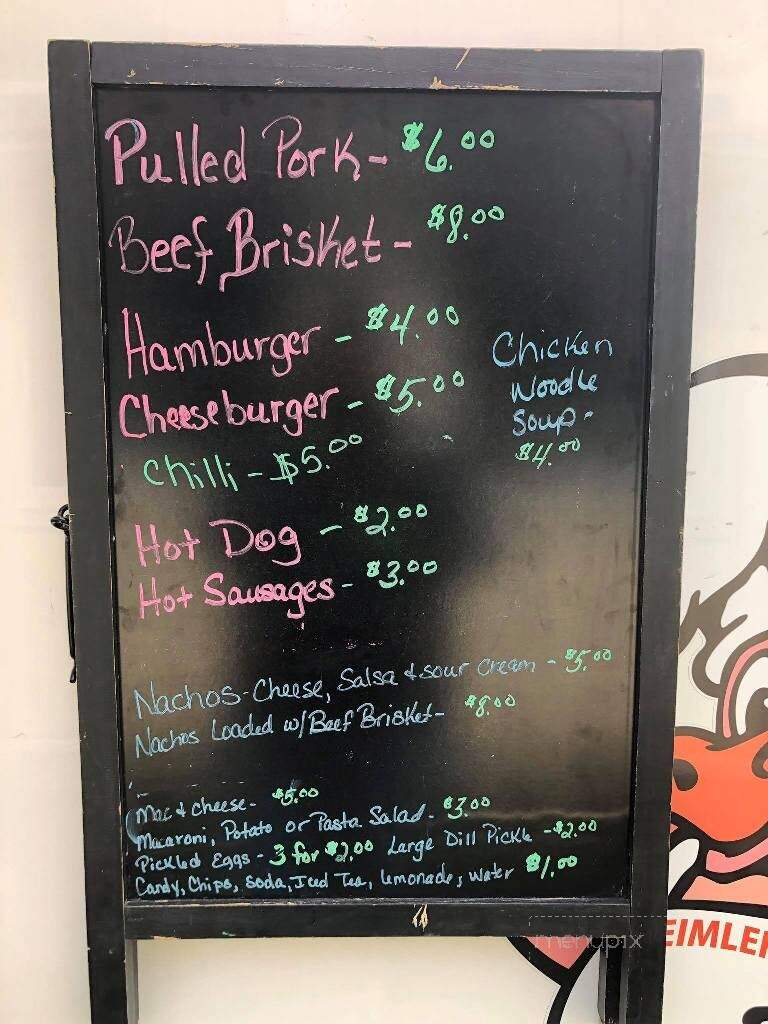 Pulled Pork - $6.00
Beef Brisket - $8.00
Hamburger - $4.00
Cheeseburger - $5.00
Chilli - $5.00
Chicken
Noodle
Soup -
$4.00
Hot Dog - $2.00
Hot Sausages - $3.00
Nachos - Cheese, Salsa & sour cream - $5.00
Nachos Loaded w/Beef Brisket - $8.00
Mac & cheese - $5.00
Macaroni, Potato or Pasta Salad - $3.00
Pickled Eggs - 3 for $2.00 Large Dill Pickle - $2.00
Candy, Chips, Soda, Iced Tea, Lemonade, Water $1.00
menupix
EIMLER